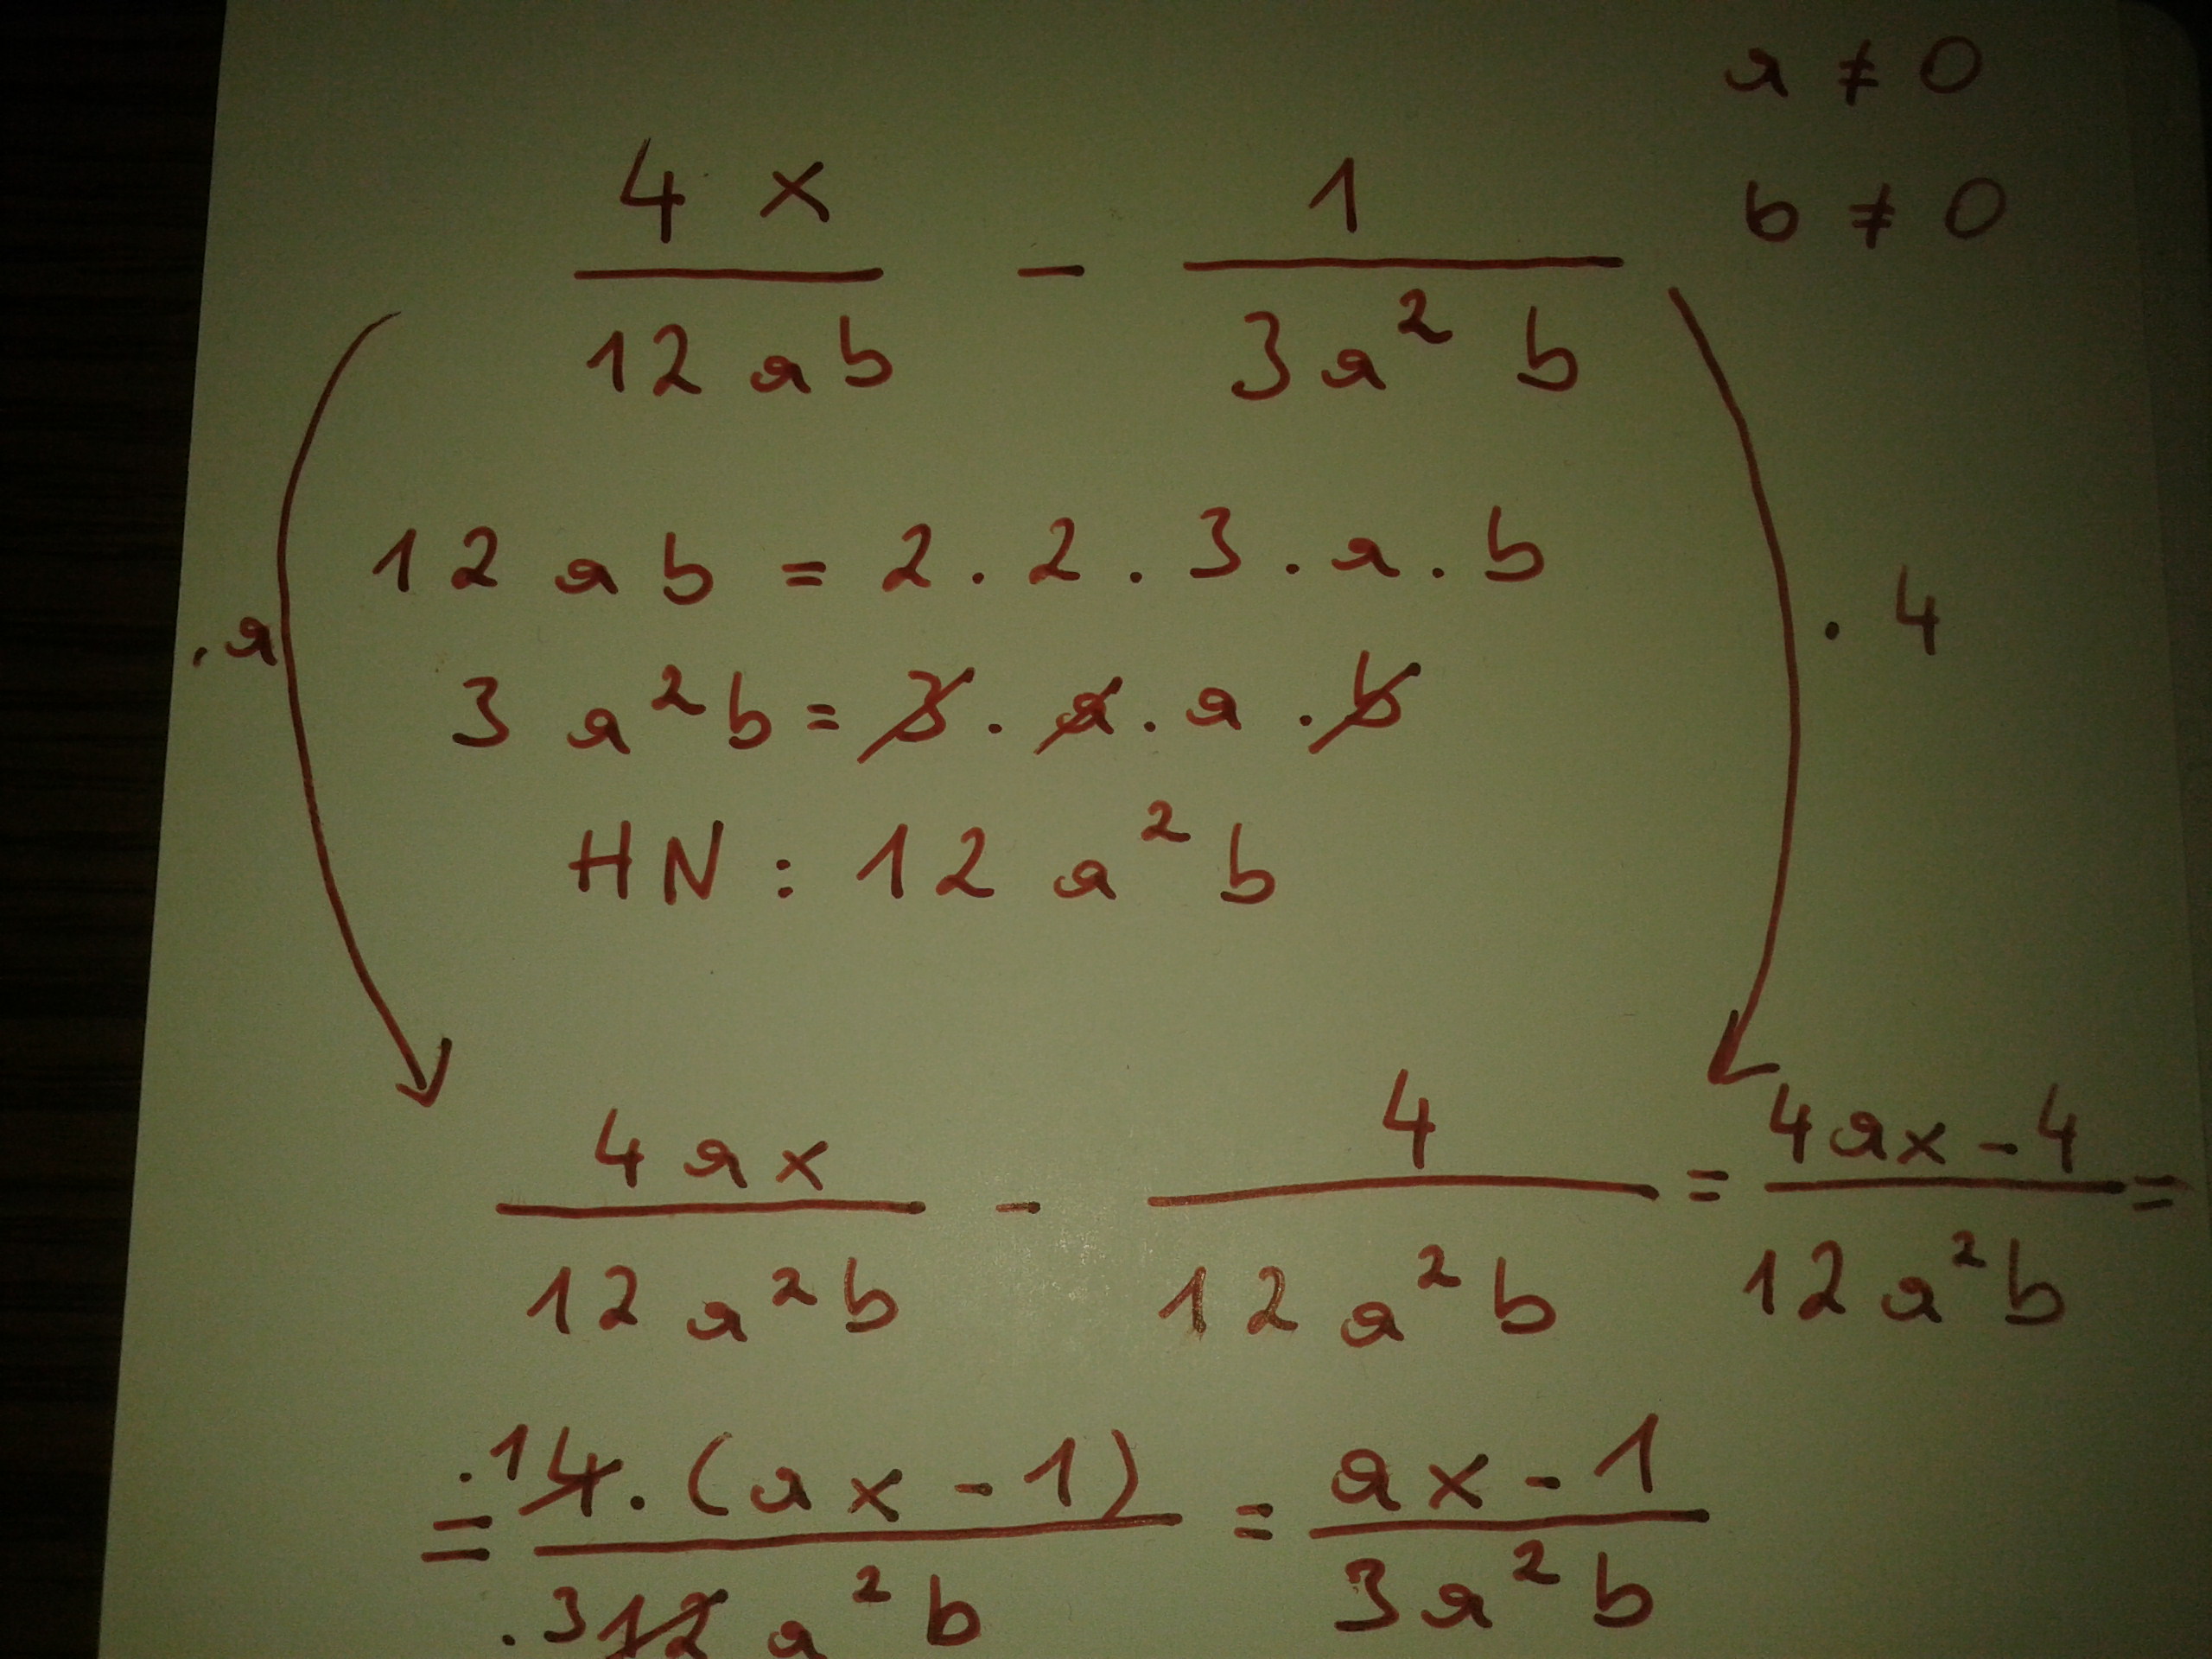 a ≠ 0
b ≠ 0
4 x / 12 ab - 1 / 3a² b
12 ab = 2 . 2 . 3 . a . b
. a
. 4
3 a²b = 3 . a . a . b
HN : 12 a² b
4 ax / 12 a²b - 4 / 12 a²b = 4ax - 4 / 12 a²b =
= .1 4 . (ax - 1) / .3 12 a²b = ax - 1 / 3a²b